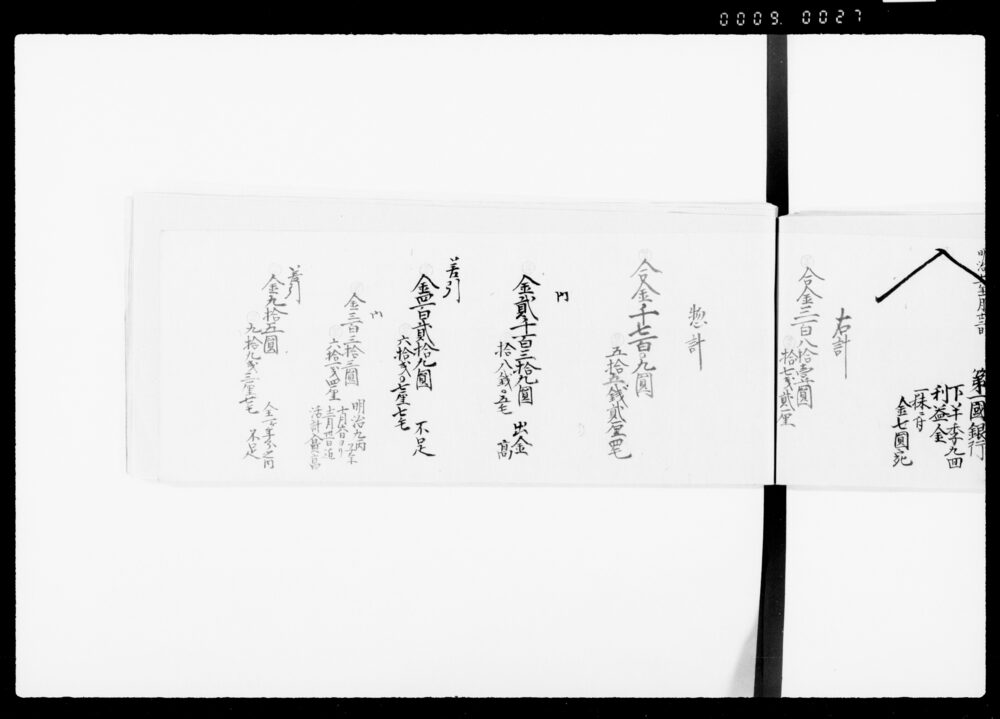 0009 0027
第一國銀行
下半季九回
利益金
一株ニ付
金七圓宛
右計
合金三百八拾壱圓
拾七戋貳厘
惣計
合金千七百〇九圓
五拾五銭貳厘四毛
内
金貳千百三拾九圓
拾八銭〇五毛
出金高
差引
金四百貳拾九圓
六拾貳戋〇七厘七毛
不足
内
金三百三拾三圓
六拾三戋四厘
明治九丙子年
十二月卅一日迄
差引
金九拾五圓
九拾九戋三厘七毛
不足